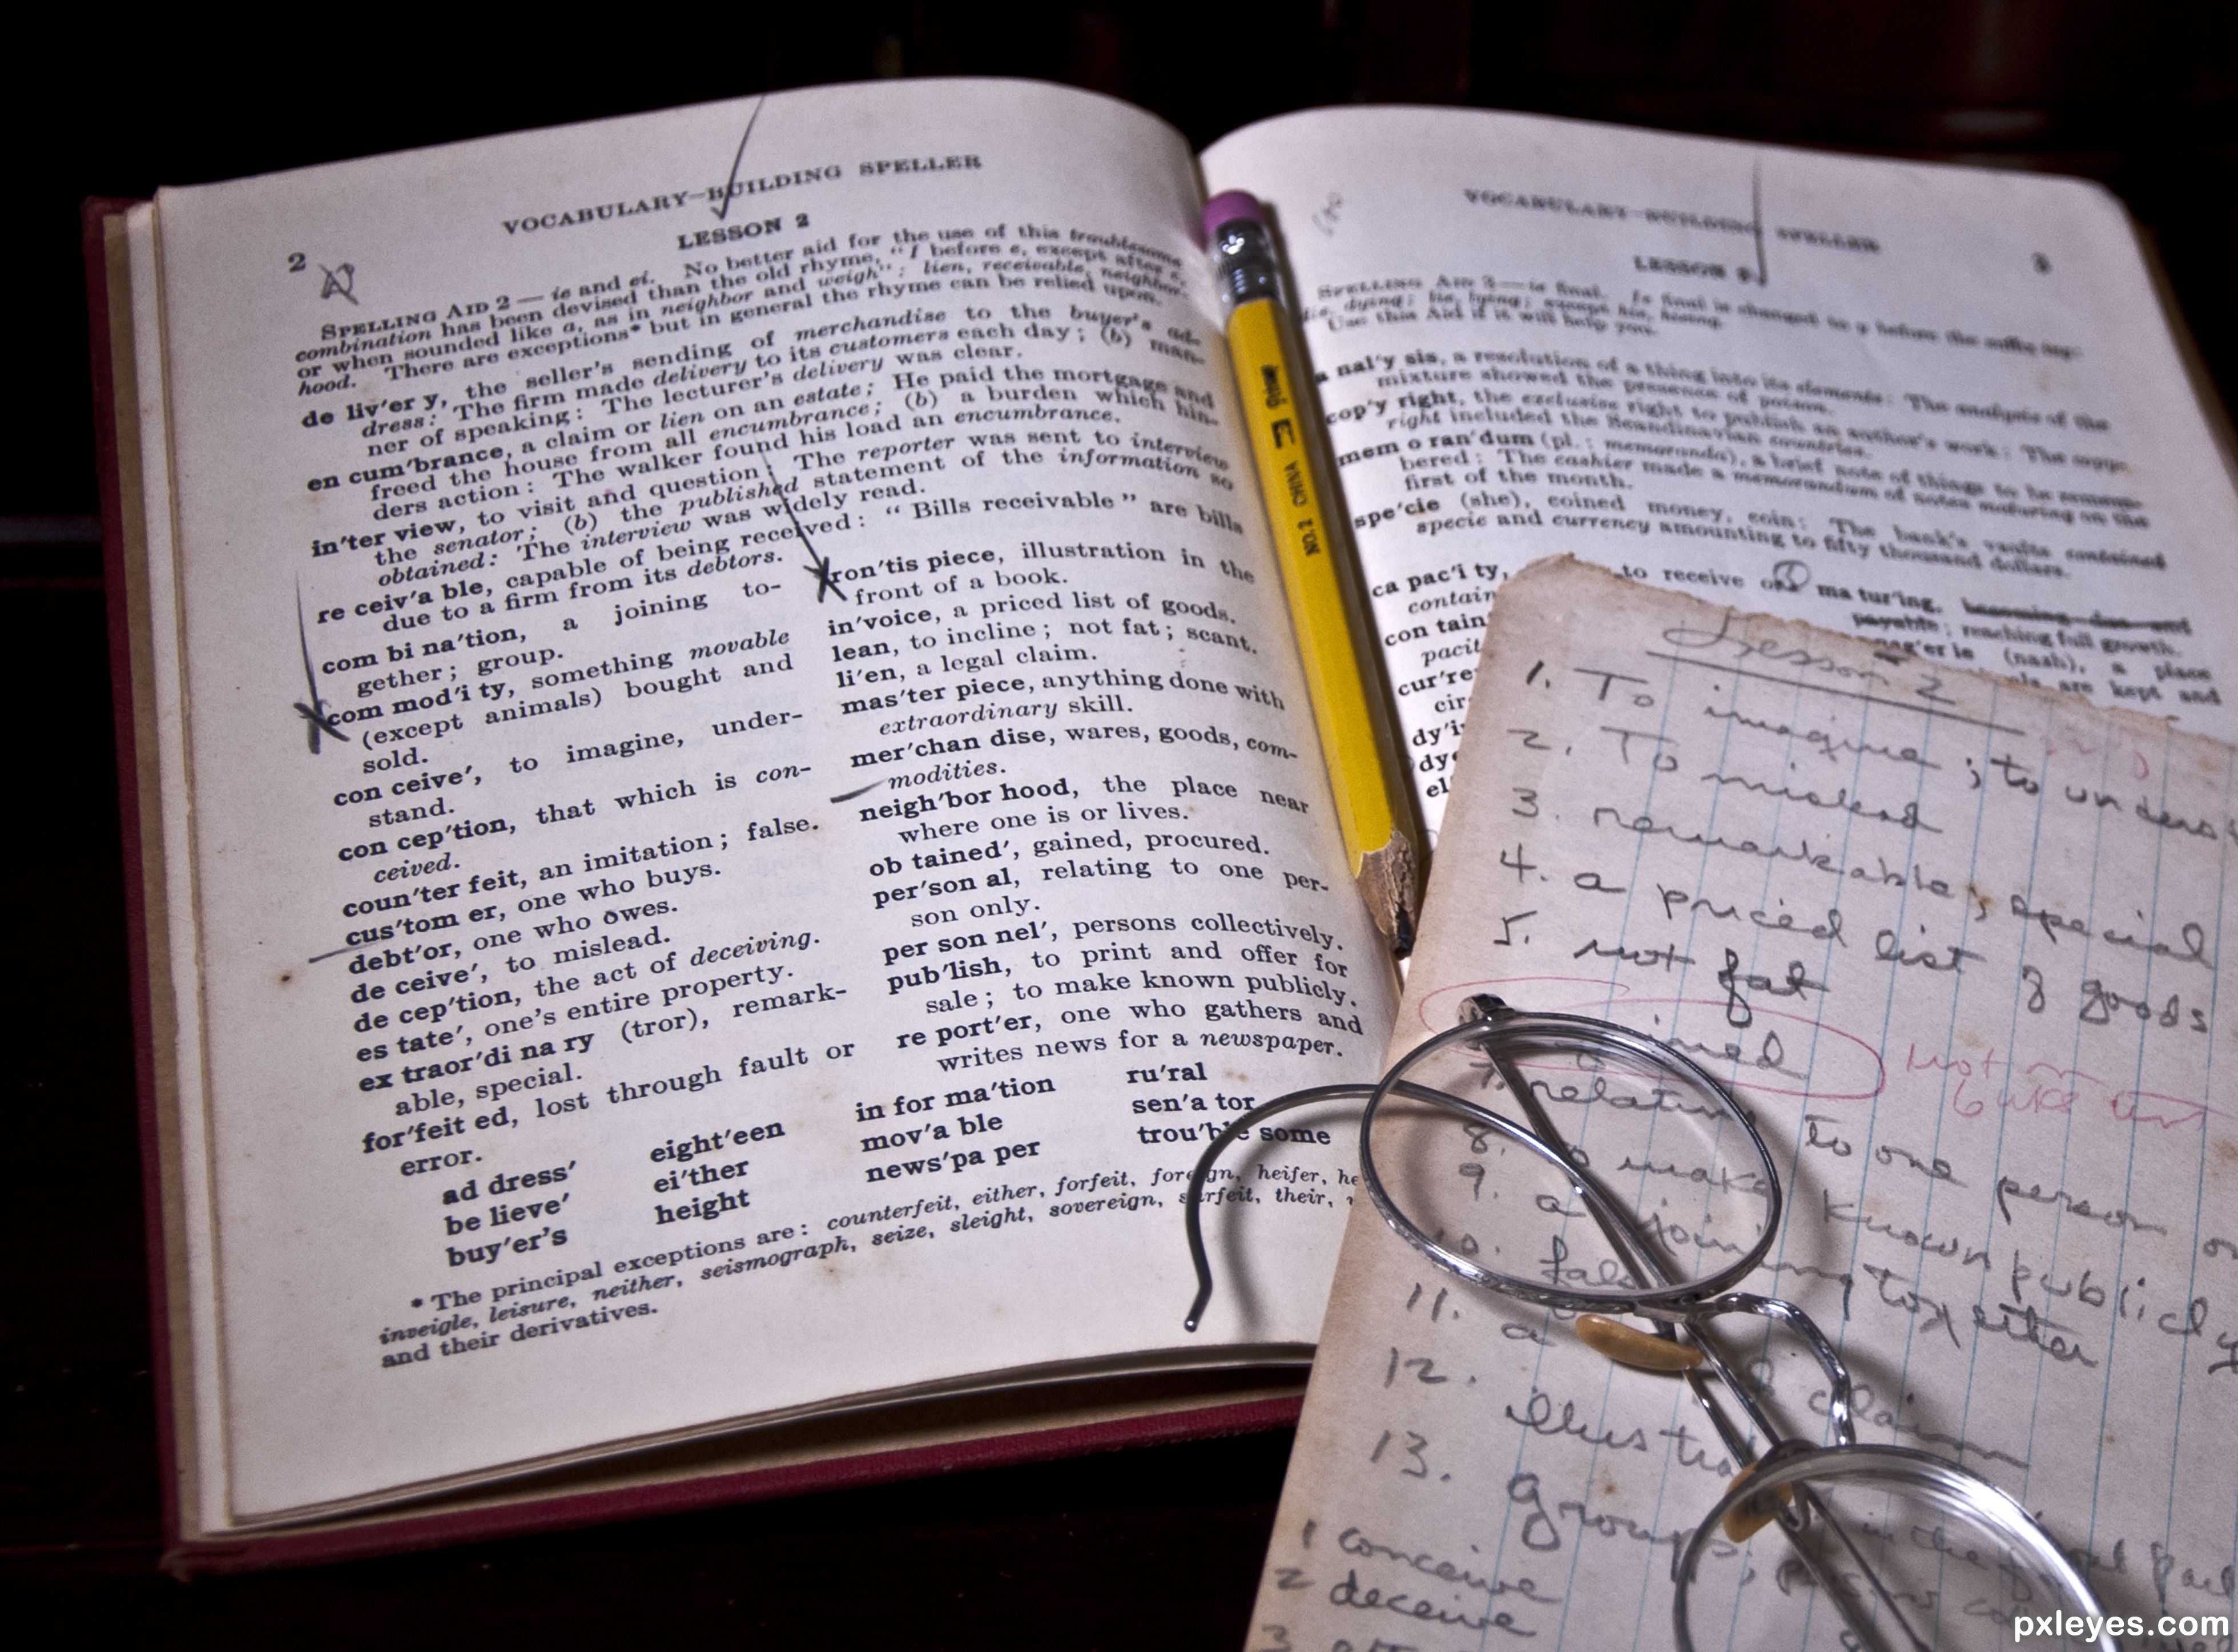 VOCABULARY-BUILDING SPELLER
LESSON 2
2
SPELLING AID 2 — ie and ei. No better aid for the use of this troublesome
combination has been devised than the old rhyme, "I before e, except after c,
or when sounded like a, as in neighbor and weigh": lien, receivable, neighbor-
hood. There are exceptions* but in general the rhyme can be relied upon.
de liv'er y, the seller's sending of merchandise to the buyer's ad-
dress: The firm made delivery to its customers each day; (b) man-
ner of speaking: The lecturer's delivery was clear.
en cum'brance, a claim or lien on an estate; He paid the mortgage and
freed the house from all encumbrance; (b) a burden which hin-
ders action: The walker found his load an encumbrance.
in'ter view, to visit and question: The reporter was sent to interview
the senator; (b) the published statement of the information so
obtained: The interview was widely read.
re ceiv'a ble, capable of being received: "Bills receivable" are bills
due to a firm from its debtors.
com bi na'tion, a joining to-
gether; group.
com mod'i ty, something movable
(except animals) bought and
sold.
con ceive', to imagine, under-
stand.
con cep'tion, that which is con-
ceived.
coun'ter feit, an imitation; false.
cus'tom er, one who buys.
debt'or, one who owes.
de ceive', to mislead.
de cep'tion, the act of deceiving.
es tate', one's entire property.
ex traor'di na ry (tror), remark-
able, special.
for'feit ed, lost through fault or
error.
fron'tis piece, illustration in the
front of a book.
in'voice, a priced list of goods.
lean, to incline; not fat; scant.
li'en, a legal claim.
mas'ter piece, anything done with
extraordinary skill.
mer'chan dise, wares, goods, com-
modities.
neigh'bor hood, the place near
where one is or lives.
ob tained', gained, procured.
per'son al, relating to one per-
son only.
per son nel', persons collectively.
pub'lish, to print and offer for
sale; to make known publicly.
re port'er, one who gathers and
writes news for a newspaper.
ad dress' eight'een in for ma'tion ru'ral
be lieve' ei'ther mov'a ble sen'a tor
buy'er's height news'pa per trou'ble some
* The principal exceptions are: counterfeit, either, forfeit, foreign, heifer, he
inveigle, leisure, neither, seismograph, seize, sleight, sovereign, surfeit, their,
and their derivatives.
VOCABULARY-BUILDING SPELLER
LESSON
3
SPELLING AID 3 — ie final. Ie final is changed to y before the suffix ing:
die, dying; lie, lying; except hie, hieing.
Use this Aid if it will help you.
a nal'y sis, a resolution of a thing into its elements: The analysis of the
mixture showed the presence of poison.
cop'y right, the exclusive right to publish an author's work: The copy-
right included the Scandinavian countries.
mem o ran'dum (pl.: memoranda), a brief note of things to be remem-
bered: The cashier made a memorandum of notes maturing on the
first of the month.
spe'cie (she), coined money, coin: The bank's vaults contained
specie and currency amounting to fifty thousand dollars.
ca pac'i ty, to receive or
contain
con tain
pacit
cur're
cir
dy'i
dye
el
ma tur'ing, becoming due and
payable; reaching full growth.
(nash), a place
are kept and
Dixon
E
CHINA
NO.2
Lesson 2
1. To imagine; to unders
2. To mislead
3. remarkable, special
4. a priced list of goods
5. not fat
7. relating to one person on
8. to make known publicly
9. a joining together
10. fals
11. a claim
12. illustra
13. Group;
1 conceive
2 deceive
pxleyes.com